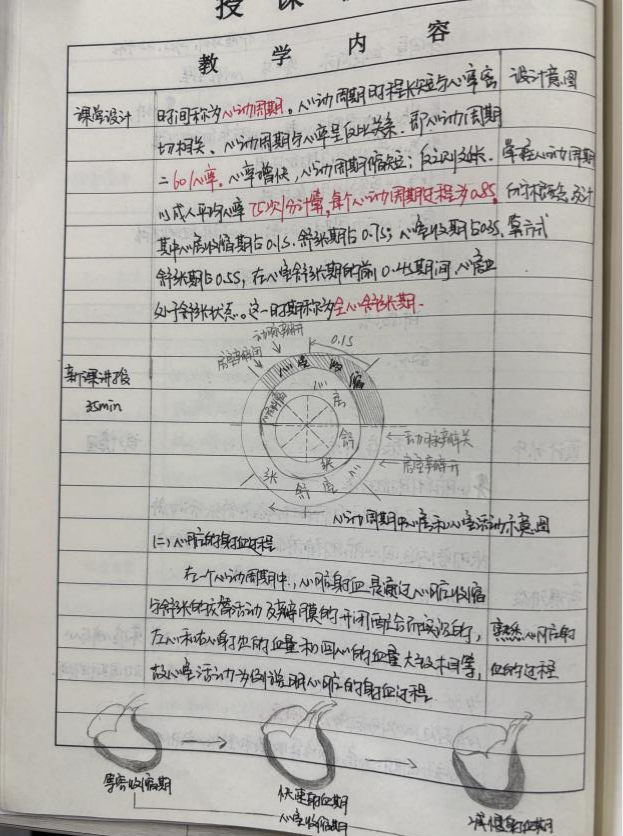 授课
教学内容
设计意图
课堂设计
时间称为心动周期。心动周期时程长短与心率密
切相关、心动周期与心率呈反比关系.即心动周期
=60/心率。心率增快,心动周期缩短;反之则延长.
掌握心动周期
以成人平均心率75次/分计算,每个心动周期过程为0.8S.
的计算方式
其中心房收缩期占0.1S.舒张期占0.7S;心室收期占0.3S.
舒张期占0.5S,在心室舒张期的前0.4S期间,心房也
处于舒张状态。这一时期称为全心舒张期.
新课讲授
35min
动脉瓣开
房室瓣闭
0.1S
心室收缩
心房收缩
心房舒张
动脉瓣关
房室瓣开
心室舒张
心动周期中心房和心室活动示意图
(二)心脏的射血过程
在一个心动周期中,心脏射血是通过心脏收缩
与舒张的交替活动及瓣膜的开闭配合而实现的,
熟悉心脏射
左心和右心射出的血量和回心的血量大致相等,
血的过程
故心室活动为例说明心脏的射血过程
等容收缩期
快速射血期
心室收缩期
减慢射血期